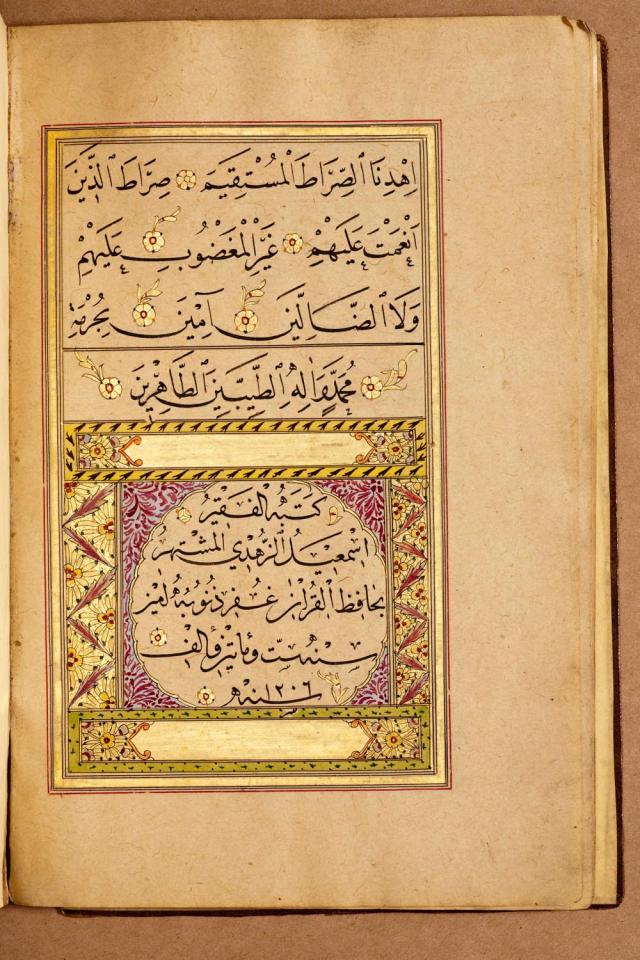 اِهْدِنَا الصِّرَاطَ الْمُسْتَقِيمَ صِرَاطَ الَّذِينَ
اَنْعَمْتَ عَلَيْهِمْ غَيْرِ الْمَغْضُوبِ عَلَيْهِمْ
وَلَا الضَّالِّينَ آمِينَ بِحُرْمَةِ
مُحَمَّدٍ وَاٰلِهِ الطَّيِّبِينَ الطَّاهِرِينَ
كتبه الفقير
اسمعيل الزهدي المشتهر
بحافظ القرآن غفر ذنوبه آمين
سنه ست ومأتين والف
سنه ١٢٠٦